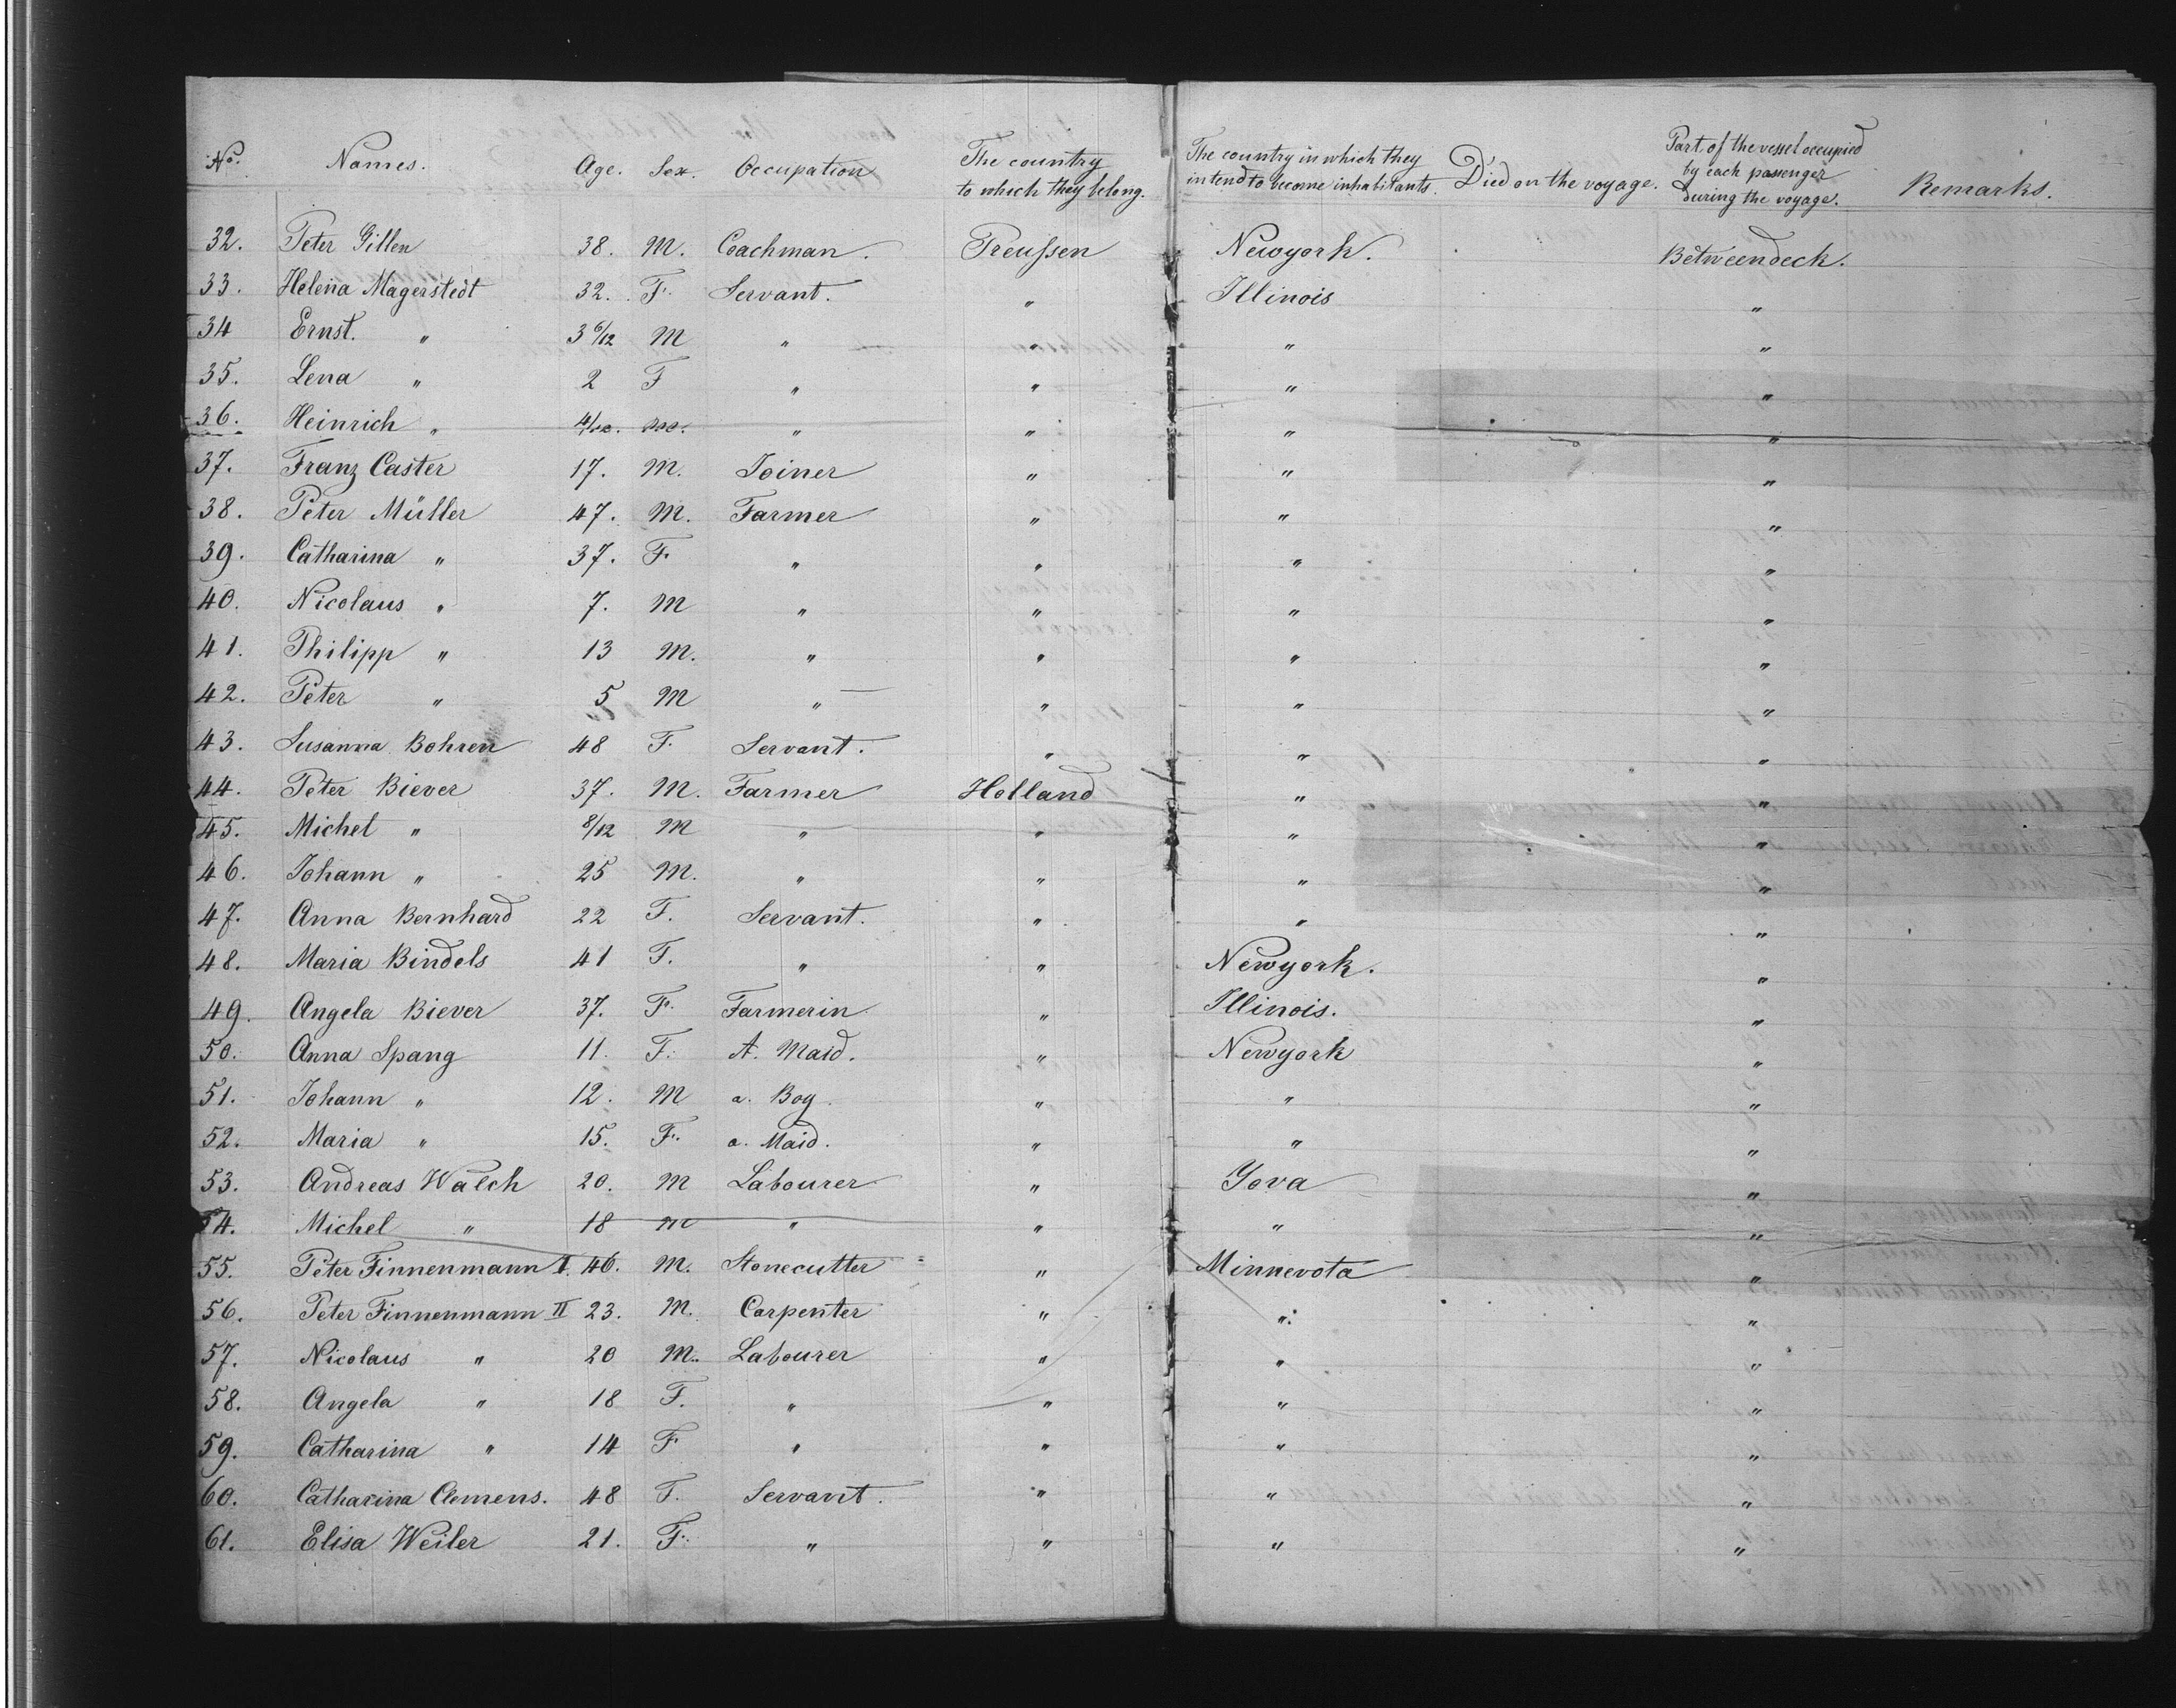 No. Names. Age. Sex. Occupation The country to which they belong. The country in which they intend to become inhabitants. Died on the voyage. Part of the vessel occupied by each passenger during the voyage. Remarks.
32. Peter Gillen 38. M. Coachman. Preußen Newyork. Betweendeck.
33. Helena Magerstedt 32. F. Servant. " Illinois "
34 Ernst. " 3 6/12 M " " " "
35. Lena " 2 F " " " "
36. Heinrich " 4/12. M. " " " "
37. Franz Caster 17. M. Joiner " " "
38. Peter Müller 47. M. Farmer " " "
39. Catharina " 37. F. " " " "
40. Nicolaus " 7. M " " " "
41. Philipp " 13 M. " " " "
42. Peter " 5 M " " " "
43. Susanna Bohren 48 F. Servant. " " "
44. Peter Biever 37. M. Farmer Holland " "
45. Michel " 8/12 M " " " "
46. Johann " 25 M. " " " "
47. Anna Bernhard 22 F. Servant. " " "
48. Maria Bindels 41 F. " " Newyork. "
49. Angela Biever 37. F. Farmerin " Illinois. "
50. Anna Spang 11. F. A. Maid. " Newyork "
51. Johann " 12. M a. Boy. " " "
52. Maria " 15. F. a. Maid. " " "
53. Andreas Walch 20. M Labourer " Yova "
54. Michel " 18 M " " " "
55. Peter Finnenmann I. 46. M. Stonecutter " Minnevota "
56. Peter Finnenmann II 23. M. Carpenter " " "
57. Nicolaus " 20 M. Labourer " " "
58. Angela " 18 F. " " " "
59. Catharina " 14 F " " " "
60. Catharina Clemens. 48 F. Servant. " " "
61. Elisa Weiler 21. F. " " " "